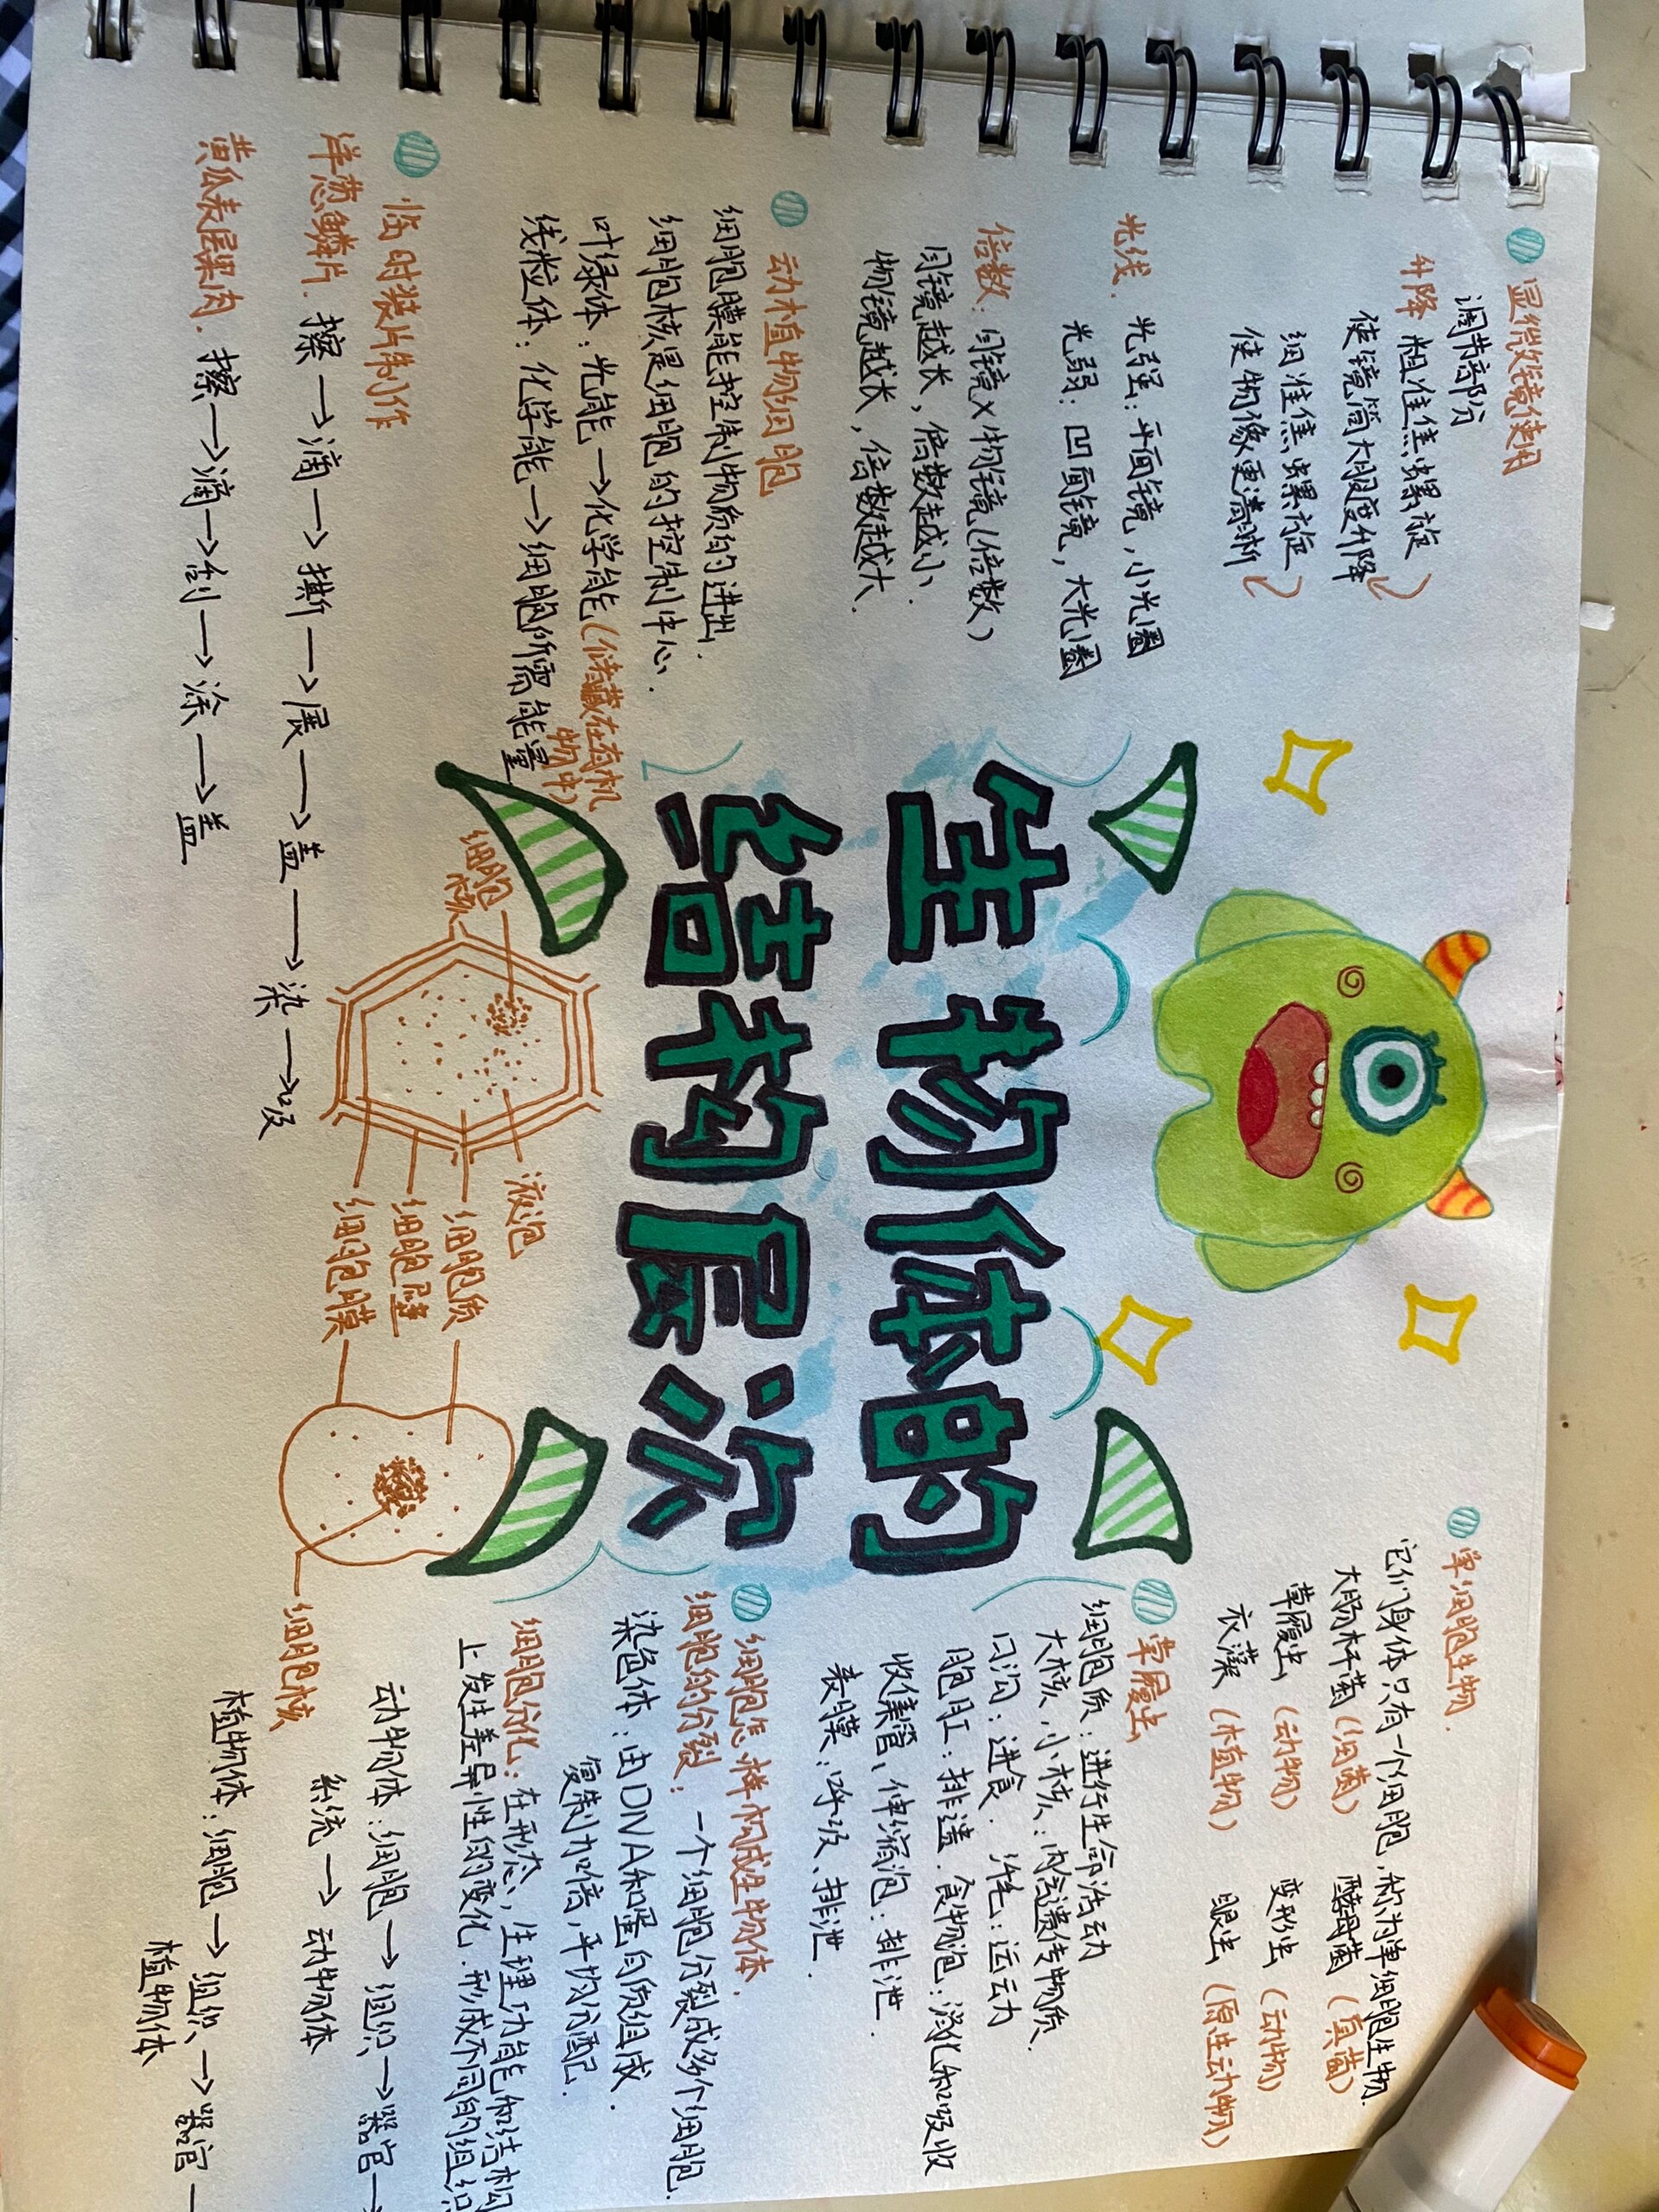 生物体的
结构层次
显微镜使用
调节部分
升降 粗准焦螺旋
使镜筒大服度升降
细准焦螺旋
使物像更清晰
光线. 光强:平面镜,小光圈
光弱:凹面镜,大光圈
倍数:目镜×物镜(倍数)
目镜越长,倍数越小.
物镜越长,倍数越大.
动植物细胞
细胞膜能控制物质的进出.
细胞核是细胞的控制中心.
叶绿体:光能→化学能(储藏在有机
物中)
线粒立体:化学能→细胞所需能量
临时装片制作
洋葱鳞片. 擦→滴→撕→展→盖→染→吸
黄瓜表层果肉. 擦→滴→刮→涂→盖
细胞
核
液泡
细胞质
细胞壁
细胞膜
细胞核
单细胞生物.
它们身体只有一个细胞,称为单细胞生物.
大肠杆菌(细菌) 酵母菌(真菌)
草履虫(动物) 变形虫(动物)
衣藻(植物) 眼虫(原生动物)
草履虫
细胞质:进行生命活动
大核、小核:内含遗传物质.
口沟:进食. 纤毛:运动力
胞肛:排遗. 食物泡:消化和吸收
收集管、伸缩泡:排泄.
表膜:呼吸、排泄.
细胞怎样构成生物体.
细胞的分裂:一个细胞分裂成多个细胞.
染色体:由DNA和蛋白质组成.
复制加倍,平均分配.
细胞分化:在形态、生理功能和结构
上发生差异性的变化.形成不同的组织
动物体:细胞→组织→器官→
系统→动物体
植物体:细胞→组织→器官→
植物体